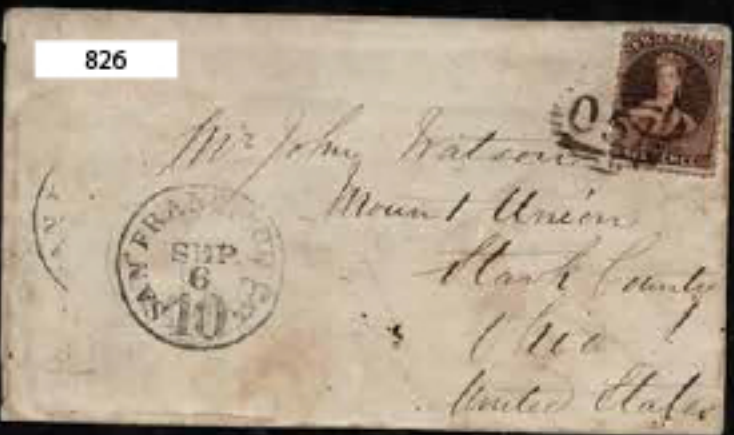 826
NEW ZEALAND
Mr John Watson
Mount Union
Stark County
Ohio
United States
SAN FRANCISCO CAL
SEP
6
10